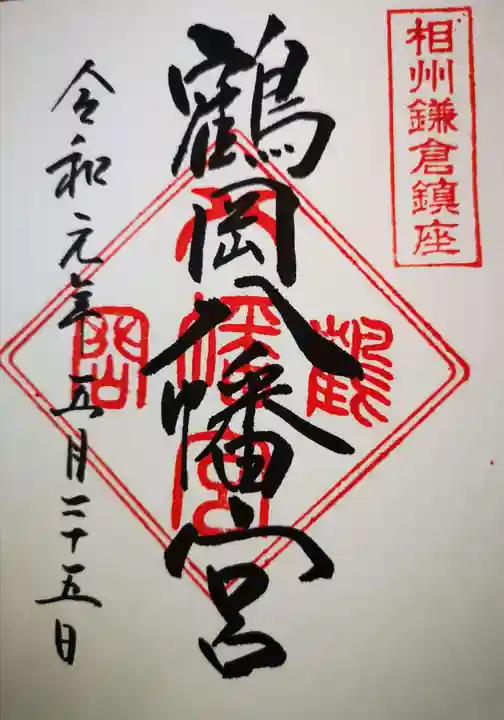 相州鎌倉鎮座
鶴岡八幡宮
鶴岡八幡宮
令和元年五月二十五日